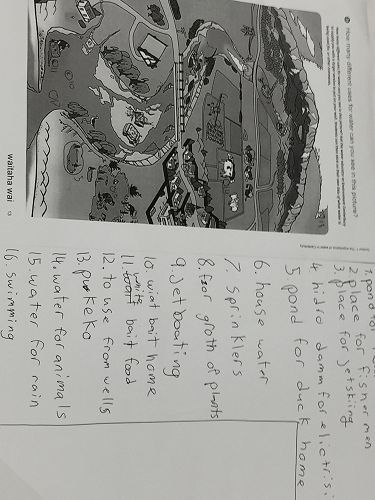 How many different uses for water can you see in this picture?
1. pond for
2 place for fishermen
3 place for jetskiing
4 hidro damm for elictris
5 pond for duck home
6. house water
7. Sprinklers
8. for groth of plants
9. Jetboating
10. wiat bait home
11. white bait food
12. to use from wells
13. pukeko
14. water for animals
15. water for rain
16. swimming
waitaha wai